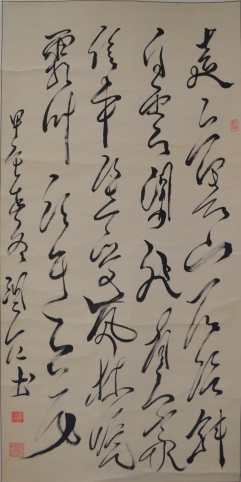 遠上寒山石径斜
白雲深處有人家
停車坐愛楓林晚
霜叶紅于二月花
甲午書